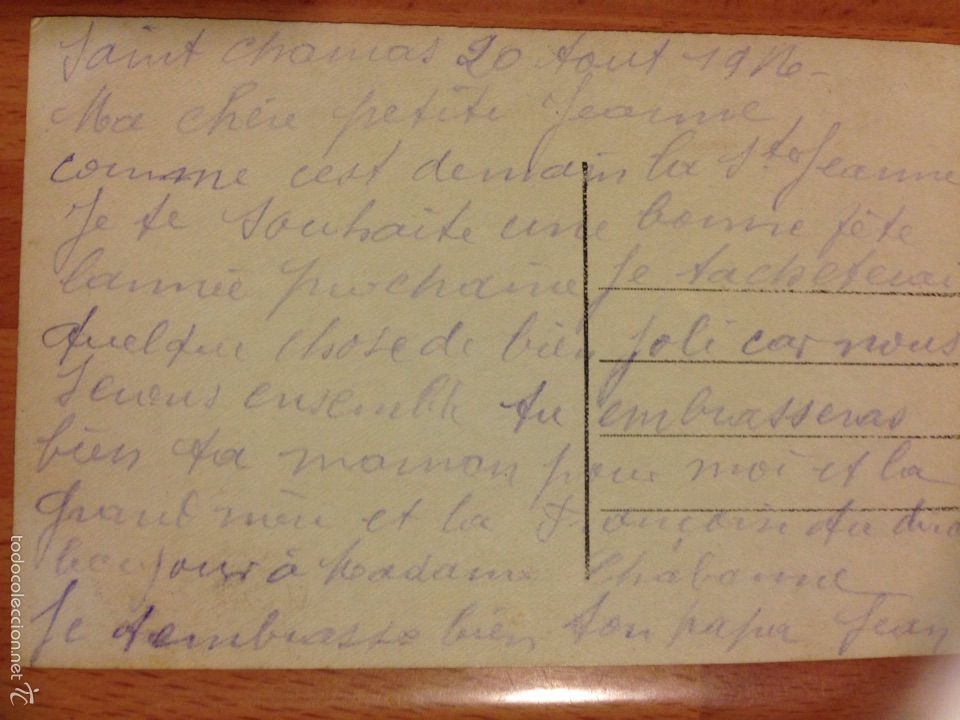 Saint chamas 20 Aout 1916-
Ma chère petite Jeanne
comme cest demain la Ste Jeanne
Je te souhaite une bonne fête
lannée prochaine Je tacheterai
quelque chose de bien joli car nous
serons ensemble tu embrasseras
bien ta maman pour moi et la
grand mère et la Françoise tu
bonjour à Madame Chabanne
Je tembrasse bien ton papa Jean
todocoleccion.net